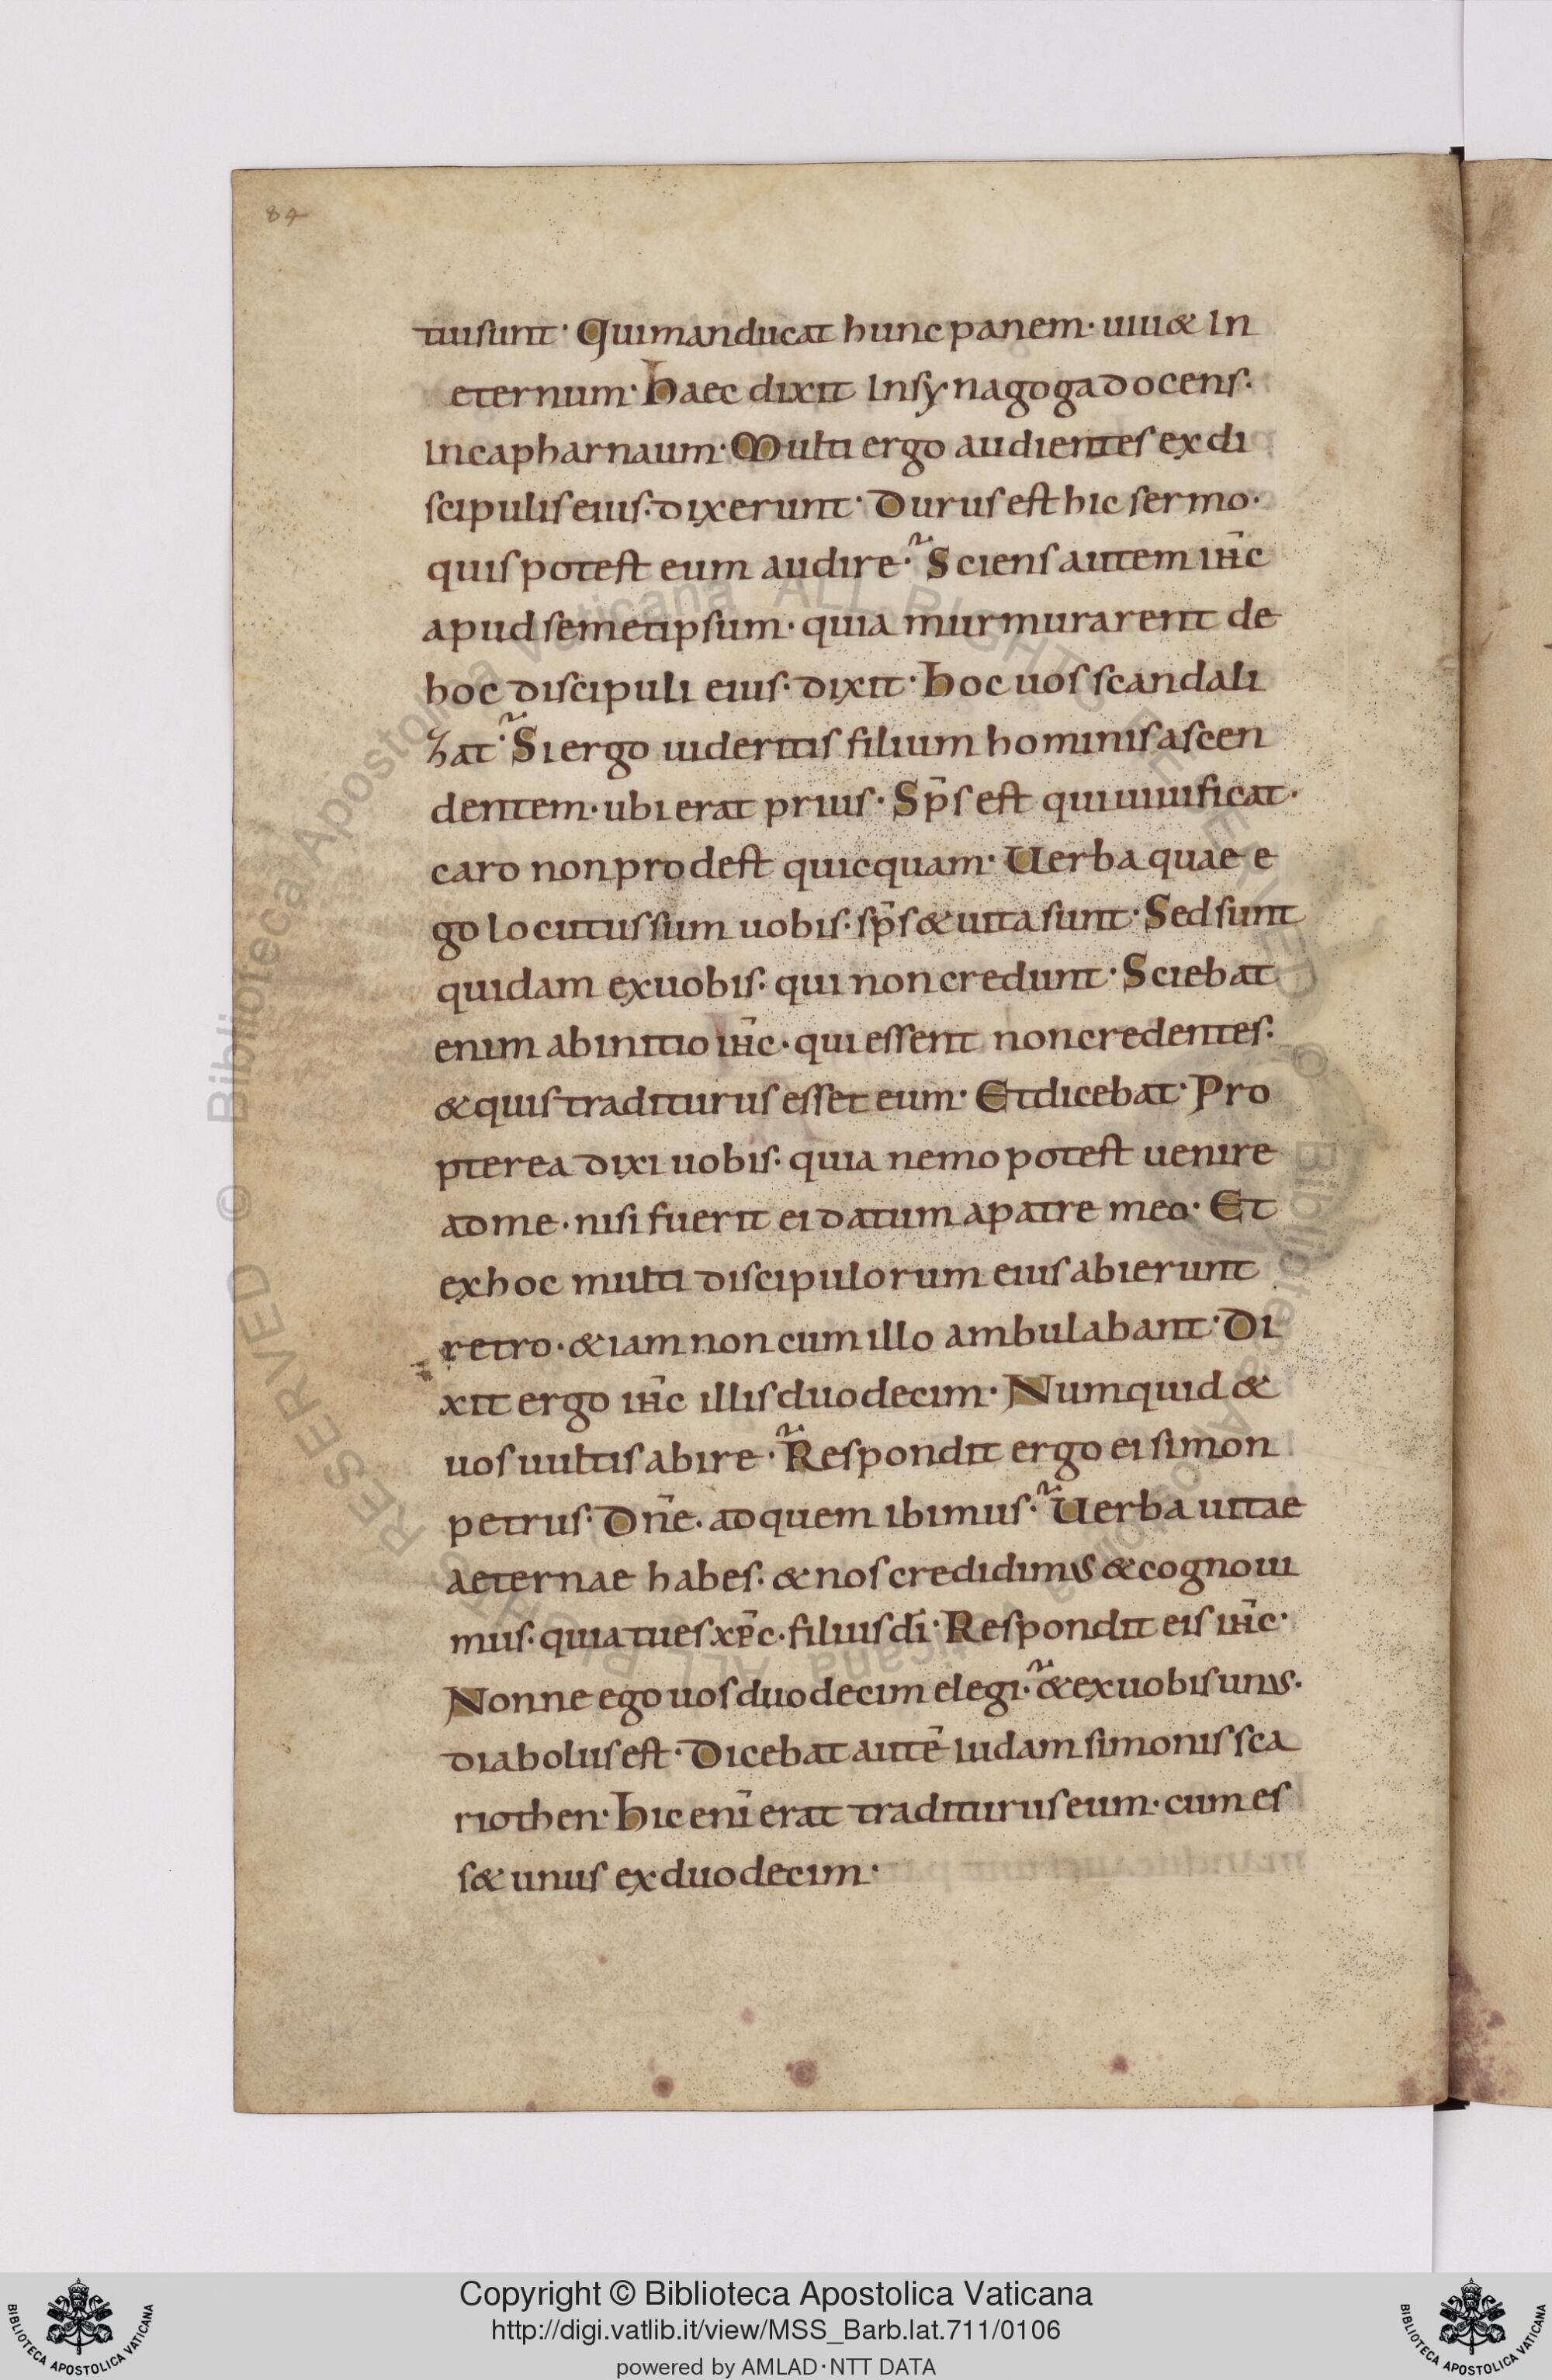 84
tui sunt· Qui manducat hunc panem· uiu& In
eternum· Haec dixit In synagoga docens·
In capharnaum· Multi ergo audientes ex di
scipulis eius· dixerunt· Durus est hic sermo·
quis potest eum audire·? Sciens autem ih̅c
apud semetipsum· quia murmurarent de
hoc discipuli eius· dixit· Hoc uos scandali
zat·? Si ergo uideritis filium hominis ascen
dentem· ubi erat prius· Sp̅s est qui uiuificat·
caro non prodest quicquam· Uerba quae e
go locutus sum uobis· sp̅s & uita sunt· Sed sunt
quidam ex uobis· qui non credunt· Sciebat
enim ab initio ih̅c· qui essent non credentes·
& quis traditurus esset eum· Et dicebat· Pro
pterea dixi uobis· quia nemo potest uenire
ad me· nisi fuerit ei datum a patre meo· Et
ex hoc multi discipulorum eius abierunt
retro· & iam non cum illo ambulabant· Di
xit ergo ih̅c illis duodecim· Numquid &
uos uultis abire·? Respondit ergo ei simon
petrus· Dn̅e· ad quem ibimus·? Uerba uitae
aeternae habes· & nos credidimus & cognoui
mus· quia tu es xp̅c· filius di̅· Respondit eis ih̅c·
Nonne ego uos duodecim elegi·? & ex uobis unus·
diabolus est· Dicebat aute̅ iudam simonis sca
riothen· Hic eni̅ erat traditurus eum· cum es
s& unus ex duodecim·
Copyright © Biblioteca Apostolica Vaticana
http://digi.vatlib.it/view/MSS_Barb.lat.711/0106
powered by AMLAD·NTT DATA
BIBLIOTECA APOSTOLICA VATICANA
BIBLIOTECA APOSTOLICA VATICANA
© Biblioteca Apostolica Vaticana ALL RIGHTS RESERVED
© Biblioteca Apostolica Vaticana ALL RIGHTS RESERVED